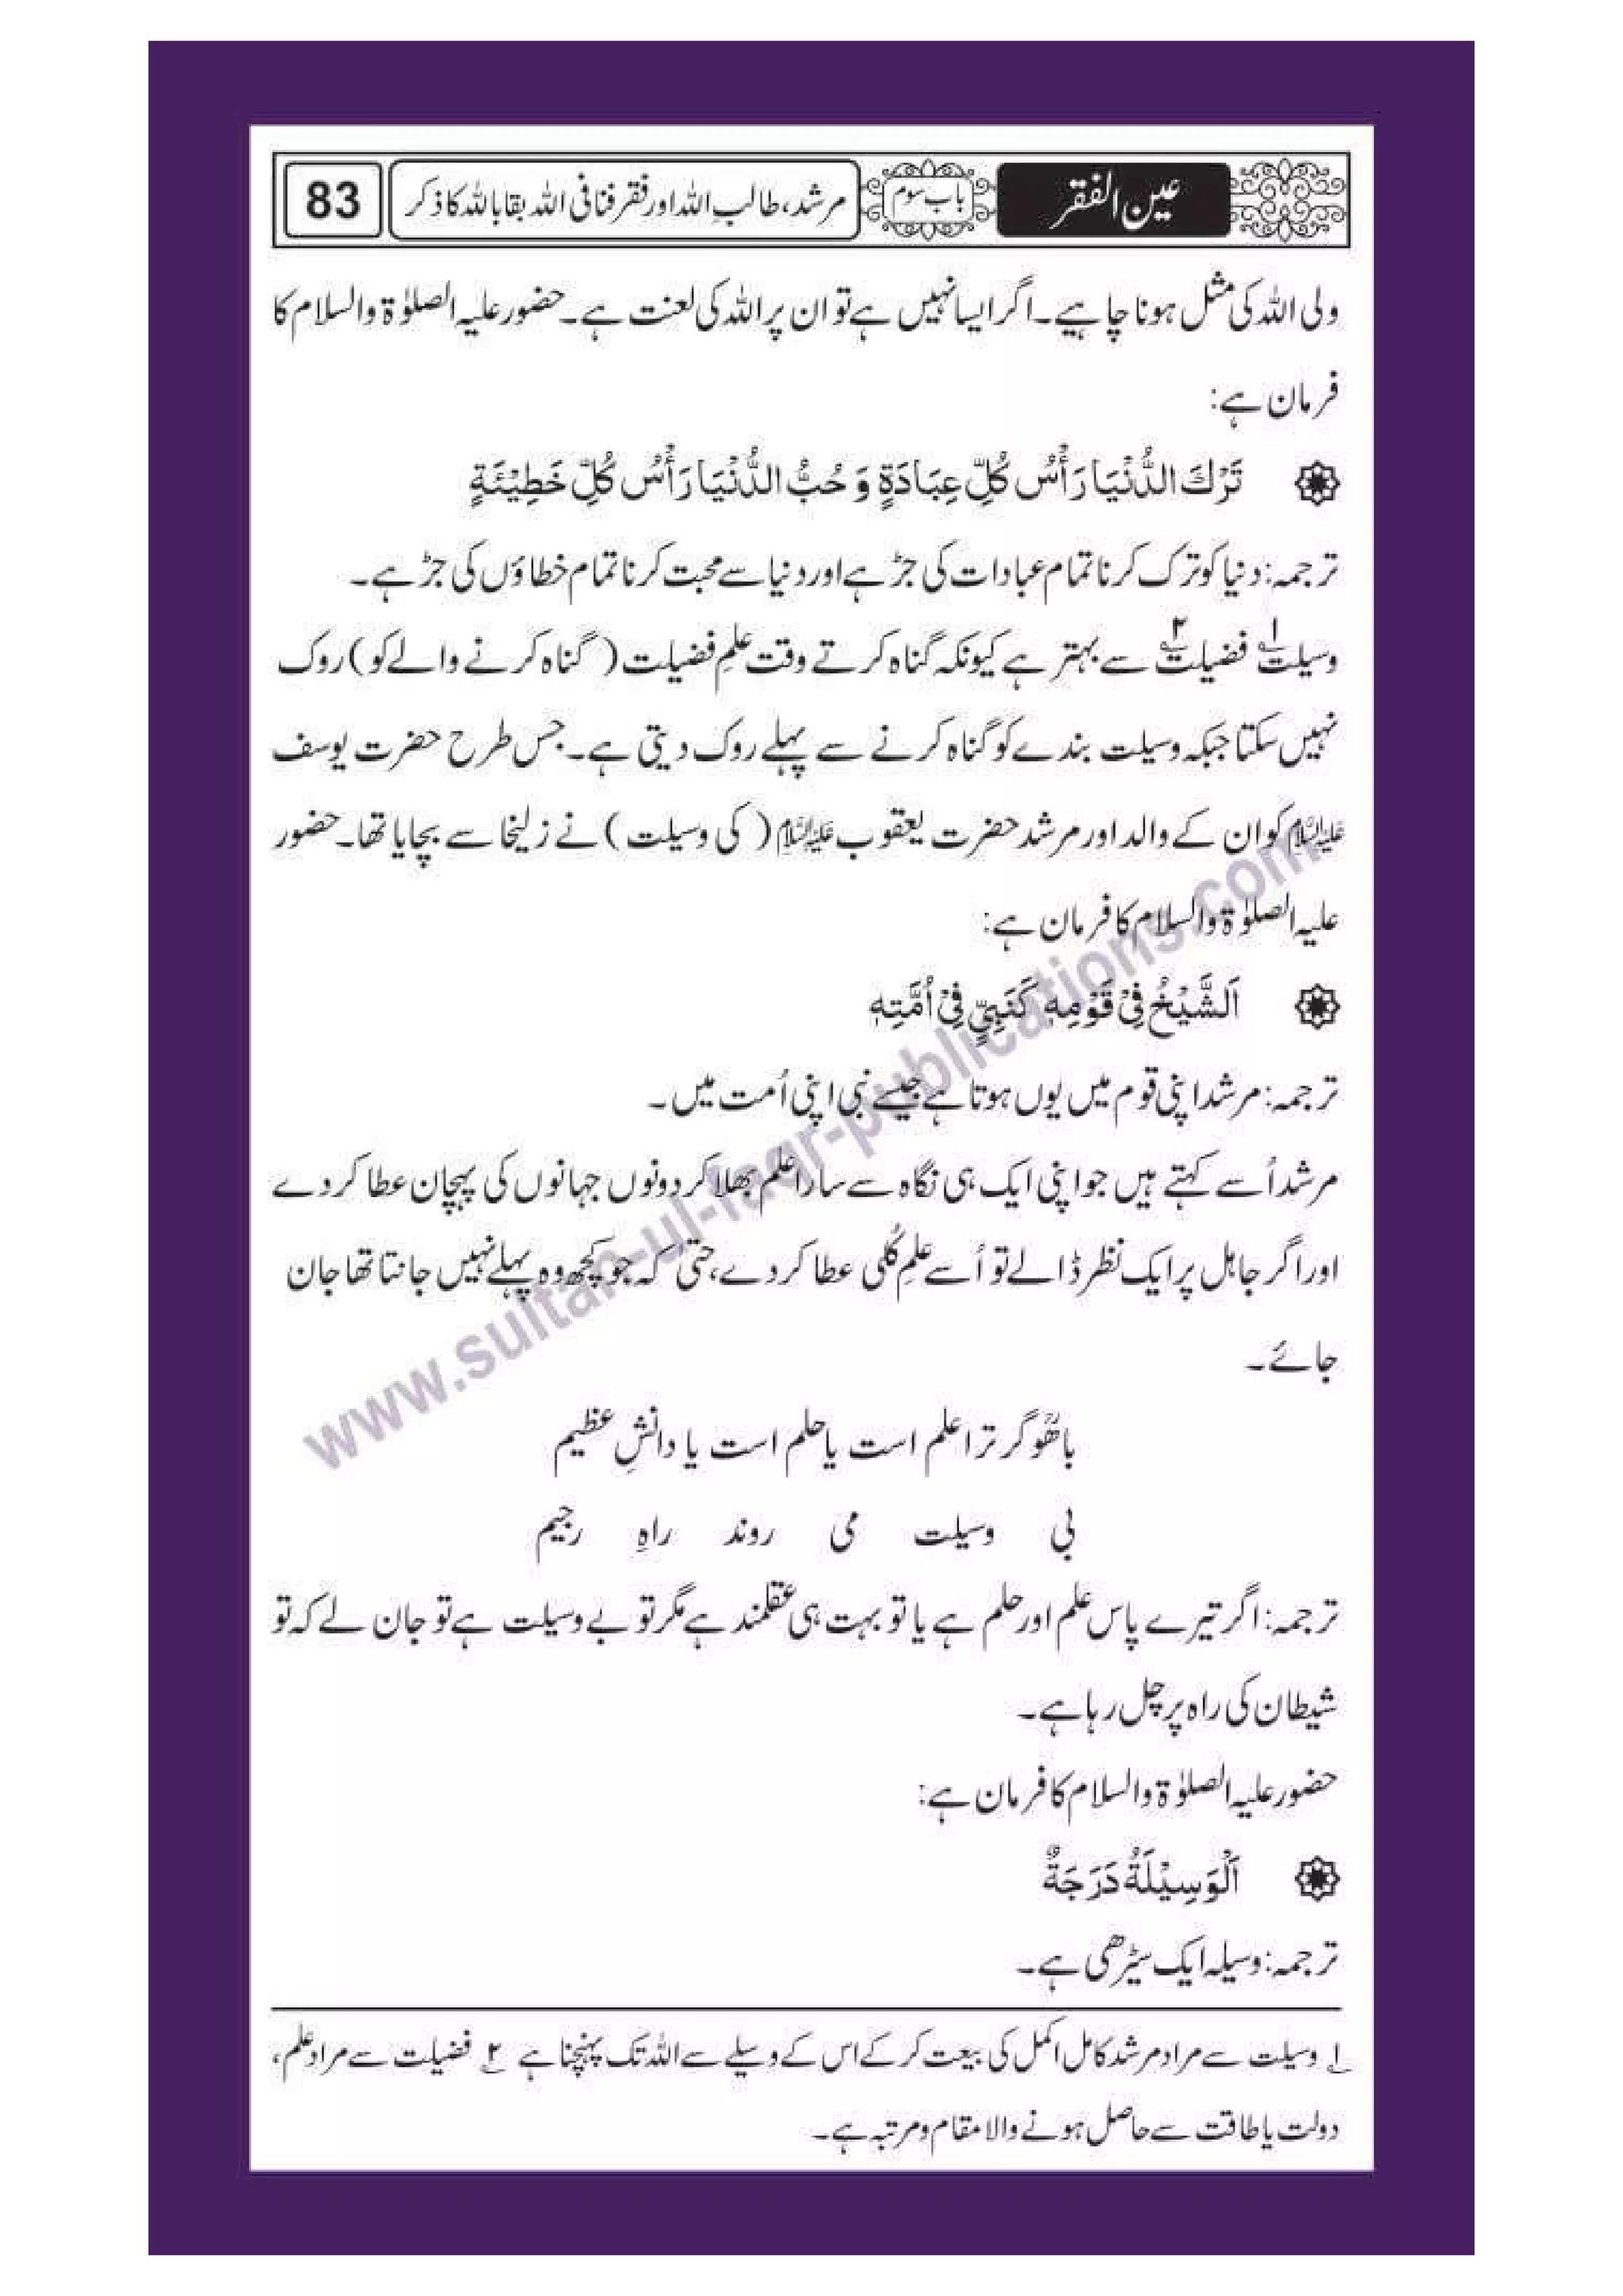 عین الفقر باب سوم مرشد، طالبِ اللہ اور فقر فنا فی اللہ بقا باللہ کا ذکر 83
ولی اللہ کی مثل ہونا چاہیے۔ اگر ایسا نہیں ہے تو ان پر اللہ کی لعنت ہے۔ حضور علیہ الصلوٰۃ والسلام کا
فرمان ہے:
تَرْكَ الدُّنْيَا رَأْسُ كُلِّ عِبَادَةٍ وَ حُبُّ الدُّنْيَا رَأْسُ كُلِّ خَطِيْئَةٍ
ترجمہ: دنیا کو ترک کرنا تمام عبادات کی جڑ ہے اور دنیا سے محبت کرنا تمام خطاؤں کی جڑ ہے۔
وسیلت۱ فضیلت۲ سے بہتر ہے کیونکہ گناہ کرتے وقت علمِ فضیلت (گناہ کرنے والے کو) روک
نہیں سکتا جبکہ وسیلت بندے کو گناہ کرنے سے پہلے روک دیتی ہے۔ جس طرح حضرت یوسف
علیہ السلام کو ان کے والد اور مرشد حضرت یعقوب علیہ السلام (کی وسیلت) نے زلیخا سے بچایا تھا۔ حضور
علیہ الصلوٰۃ والسلام کا فرمان ہے:
اَلشَّيْخُ فِيْ قَوْمِهٖ كَنَبِيٍّ فِيْ اُمَّتِهٖ
ترجمہ: مرشد اپنی قوم میں یوں ہوتا ہے جیسے نبی اپنی اُمت میں۔
مرشد اُسے کہتے ہیں جو اپنی ایک ہی نگاہ سے سارا علم بھلا کر دونوں جہانوں کی پہچان عطا کر دے
اور اگر جاہل پر ایک نظر ڈالے تو اُسے علمِ کُلی عطا کر دے، حتیٰ کہ جو کچھ وہ پہلے نہیں جانتا تھا جان
جائے۔
باھُوؒ گر ترا علم است یا حلم است یا دانشِ عظیم
بی وسیلت می روند راہِ رجیم
ترجمہ: اگر تیرے پاس علم اور حلم ہے یا تو بہت ہی عقلمند ہے مگر تو بے وسیلت ہے تو جان لے کہ تو
شیطان کی راہ پر چل رہا ہے۔
حضور علیہ الصلوٰۃ والسلام کا فرمان ہے:
اَلْوَسِيْلَةُ دَرَجَةٌ
ترجمہ: وسیلہ ایک سیڑھی ہے۔
۱ وسیلت سے مراد مرشد کامل اکمل کی بیعت کر کے اس کے وسیلے سے اللہ تک پہنچنا ہے ۲ فضیلت سے مراد علم،
دولت یا طاقت سے حاصل ہونے والا مقام و مرتبہ ہے۔
www.sultan-ul-faqr-publications.com